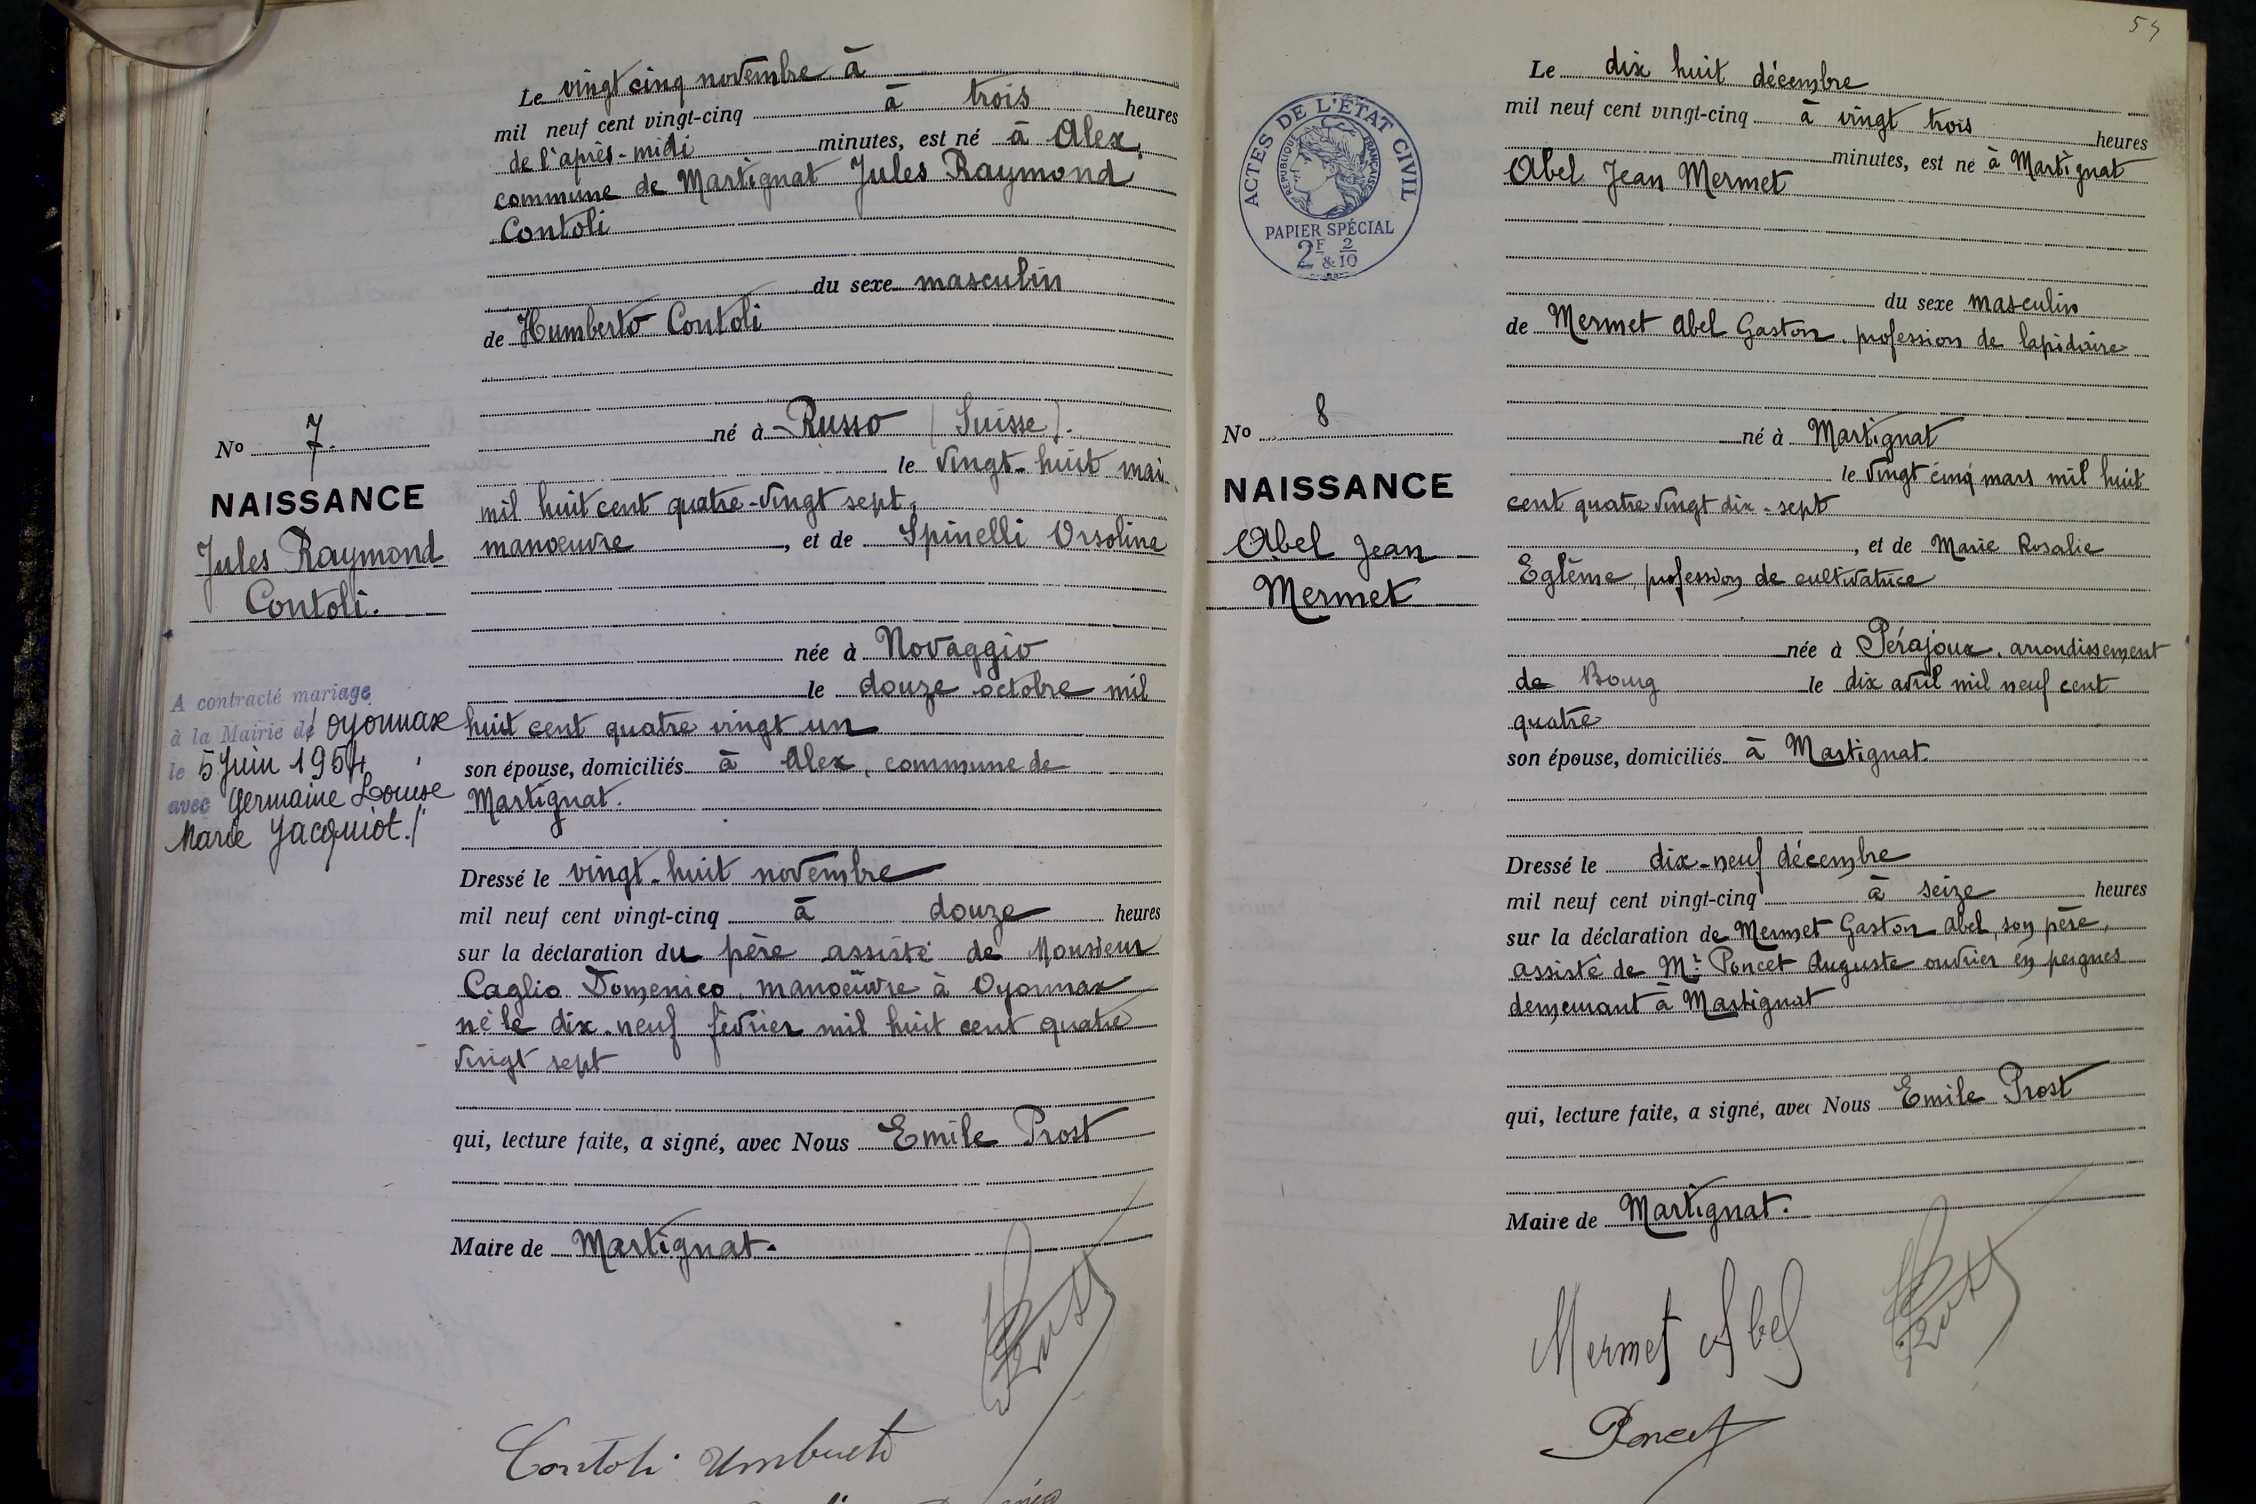 Le vingt cinq novembre à
mil neuf cent vingt-cinq à trois heures
de l'après-midi minutes, est né à Alex,
commune de Martignat Jules Raymond
Contoli
du sexe masculin
de Humberto Contoli
né à Russo (Suisse).
le vingt-huit mai
mil huit cent quatre-vingt sept,
manœuvre, et de Spinelli Orsoline
née à Novaggio
le douze octobre mil
huit cent quatre vingt un
son épouse, domiciliés à Alex, commune de
Martignat.
Dressé le vingt-huit novembre
mil neuf cent vingt-cinq à douze heures
sur la déclaration du père assisté de Monsieur
Caglio Domenico, manœuvre à Oyonnax
né le dix-neuf février mil huit cent quatre
vingt sept
qui, lecture faite, a signé, avec Nous Emile Prost
Maire de Martignat.
Contoli Umberto
No 7.
NAISSANCE
Jules Raymond
Contoli.
A contracté mariage
à la Mairie d'Oyonnax
le 5 Juin 1954
avec Germaine Louise
Marie Jacquiot./
ACTES DE L'ÉTAT CIVIL
RÉPUBLIQUE FRANÇAISE
PAPIER SPÉCIAL
2F & 2/10
No 8
NAISSANCE
Abel Jean
Mermet
Le dix huit décembre
mil neuf cent vingt-cinq à vingt trois heures
minutes, est né à Martignat
Abel Jean Mermet
du sexe masculin
de Mermet Abel Gaston, profession de lapidaire
né à Martignat
le vingt cinq mars mil huit
cent quatre vingt dix-sept
, et de Marie Rosalie
Eglème, profession de cultivatrice
née à Pérajoux, arrondissement
de Bourg le dix avril mil neuf cent
quatre
son épouse, domiciliés à Martignat.
Dressé le dix-neuf décembre
mil neuf cent vingt-cinq à seize heures
sur la déclaration de Mermet Gaston Abel, son père,
assisté de Mr Poncet Auguste ouvrier en peignes
demeurant à Martignat
qui, lecture faite, a signé, avec Nous Emile Prost
Maire de Martignat.
Mermet Abel
Prost
Poncet